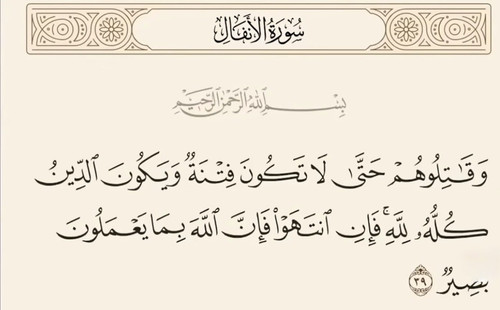 سُورَةُ الأَنفَالِ
بِسْمِ اللَّهِ الرَّحْمَٰنِ الرَّحِيمِ
وَقَٰتِلُوهُمْ حَتَّىٰ لَا تَكُونَ فِتْنَةٌ وَيَكُونَ ٱلدِّينُ
كُلُّهُۥ لِلَّهِۚ فَإِنِ ٱنتَهَوْا۟ فَإِنَّ ٱللَّهَ بِمَا يَعْمَلُونَ
بَصِيرٌ ٣٩